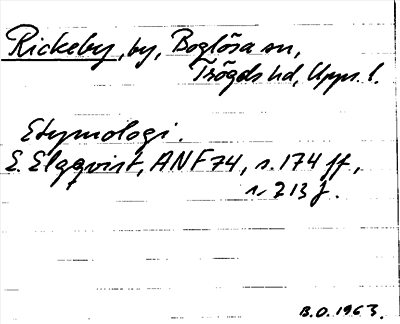 Rickeby, by, Boglösa sn,
Trögds hd, Upps. l.
Etymologi.
E. Elgqvist, ANF 74, s. 174 ff,
s. 213 f.
B.O. 1963.